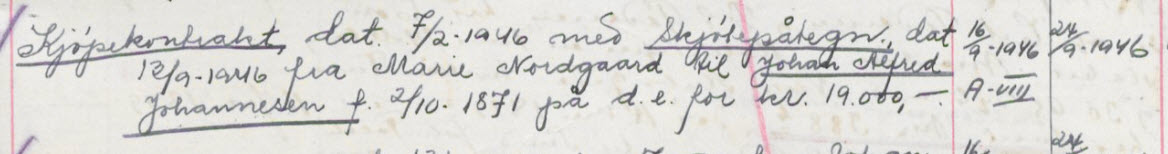 Kjöpekontrakt, dat. 7/2-1946 med Skjötepåtegn., dat 16/9-1946 24/9-1946
12/9-1946 fra Marie Nordgaard til Johan Alfred
Johannesen f. 2/10-1871 på d.e. for kr. 19.000,-. A-VIII
16 24